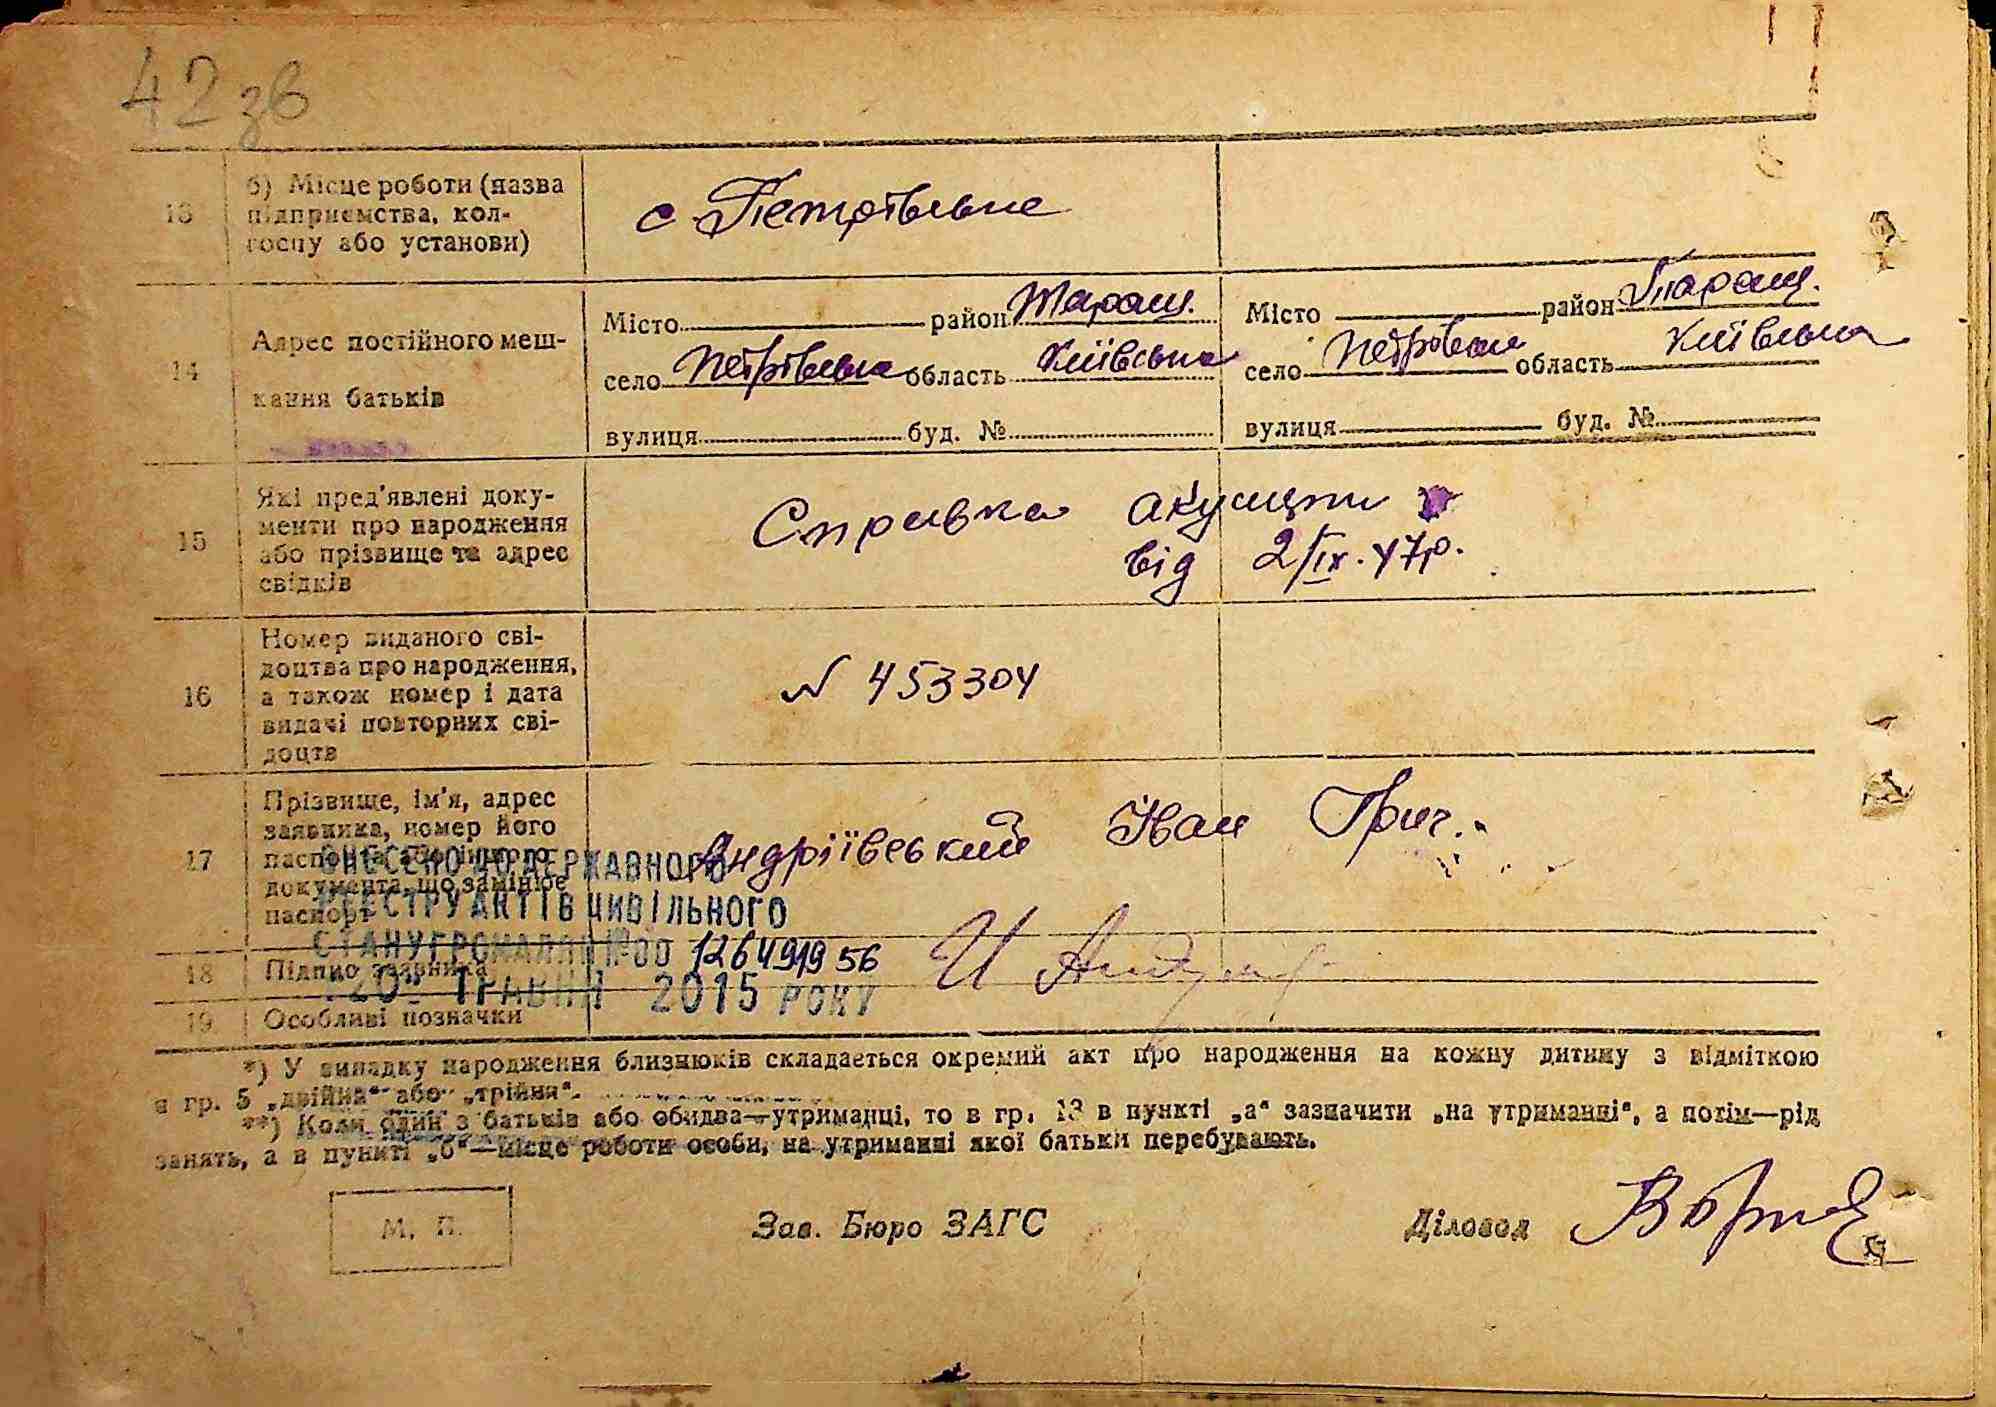 42 зв
13 б) Місце роботи (назва підприємства, колгоспу або установи)
с Петрівське
14 Адрес постійного мешкання батьків
Місто район Таращ.
село Петрівське область Київська
вулиця буд. №
Місто район Таращ.
село Петрівське область Київська
вулиця буд. №
15 Які пред'явлені документи про народження або прізвище та адрес свідків
Справка акушерки
від 2/IX.47р.
16 Номер виданого свідоцтва про народження, а також номер і дата видачі повторних свідоцтв
N 453304
17 Прізвище, ім'я, адрес заявника, номер його паспорта або іншого документа, що замінює паспорт
Андріївський Іван Григ.
ВНЕСЕНО ДО ДЕРЖАВНОГО
РЕЄСТРУ АКТІВ ЦИВІЛЬНОГО
СТАНУ ГРОМАДЯН №00 1264919 56
"20" ТРАВНЯ 2015 РОКУ
18 Підпис заявника
19 Особливі позначки
*) У випадку народження близнюків складається окремий акт про народження на кожну дитину з відміткою
в гр. 5 „двійна“ або „трійня“.
**) Коли один з батьків або обидва—утриманці, то в гр. 13 в пункті „а“ зазначити „на утриманні“, а потім—рід
занять, а в пункті „б“—місце роботи особи, на утриманні якої батьки перебувають.
М. П.
Зав. Бюро ЗАГС
Діловод